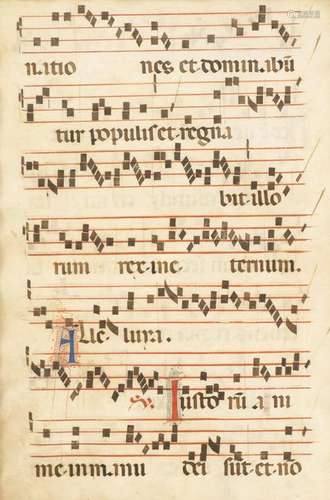 natio nes et domınabū
tur populis et regna
bit illo
rum rex in e ternum.
Alle luıa.
℣. Iusto rū. a nı
me in manu dei sūt et nō